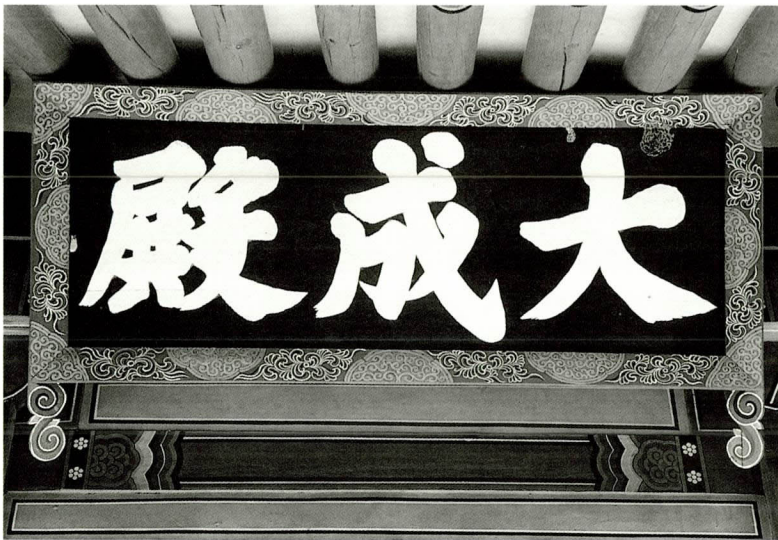 大成殿